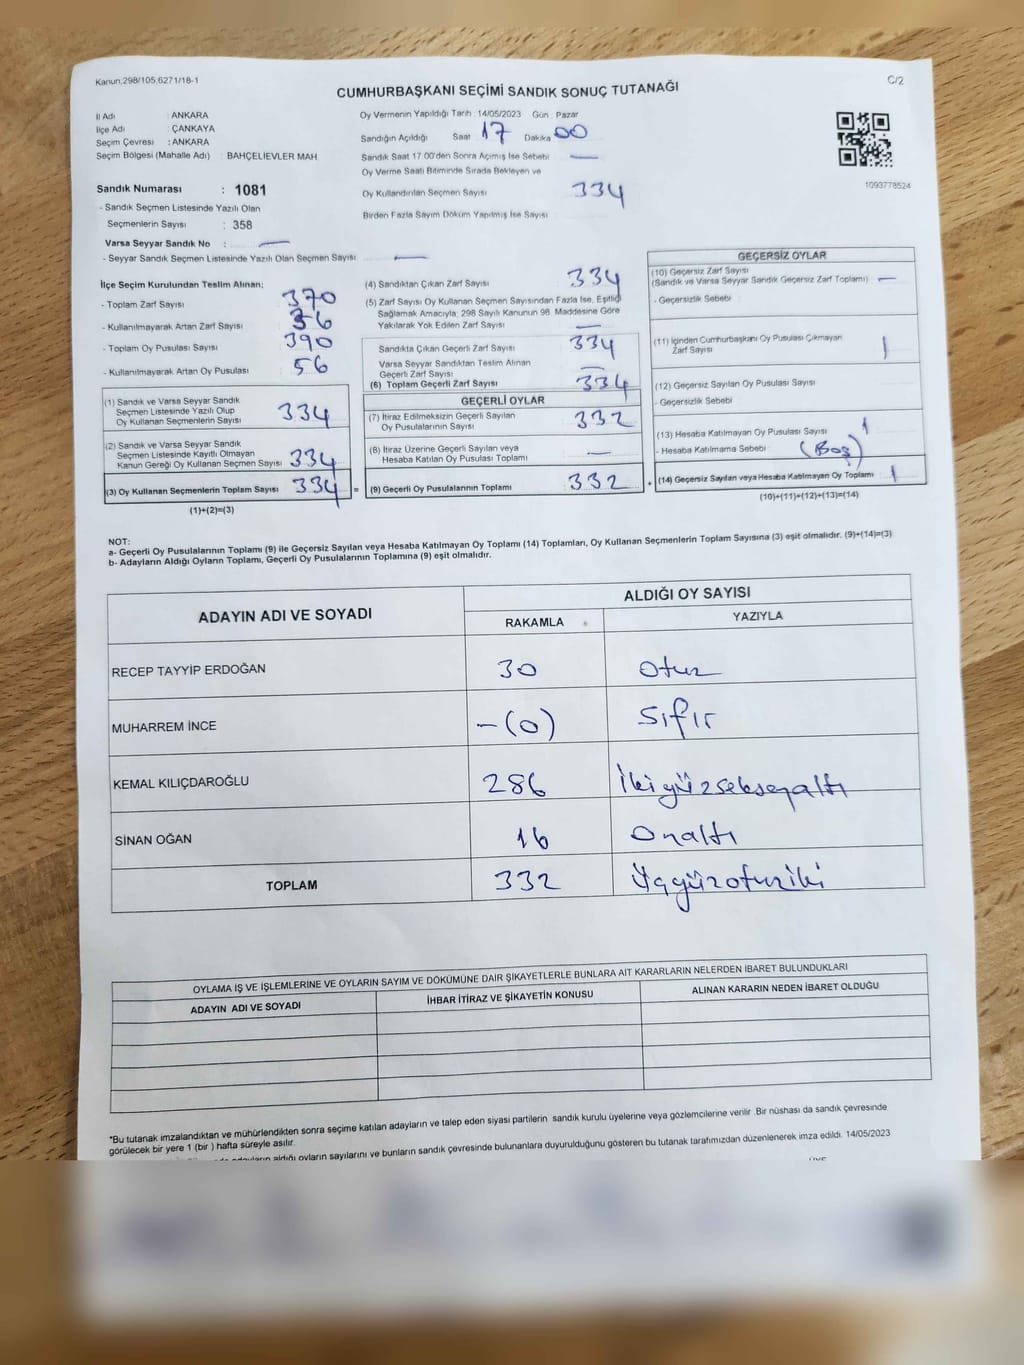 Kanun,298/105,6271/18-1
C/2
CUMHURBAŞKANI SEÇİMİ SANDIK SONUÇ TUTANAĞI
İl Adı : ANKARA
İlçe Adı : ÇANKAYA
Seçim Çevresi : ANKARA
Seçim Bölgesi (Mahalle Adı) : BAHÇELİEVLER MAH.
Sandık Numarası : 1081
- Sandık Seçmen Listesinde Yazılı Olan
Seçmenlerin Sayısı : 358
Varsa Seyyar Sandık No : —
- Seyyar Sandık Seçmen Listesinde Yazılı Olan Seçmen Sayısı —
Oy Vermenin Yapıldığı Tarih : 14/05/2023 Gün : Pazar
Sandığın Açıldığı Saat 17 Dakika 00
Sandık Saat 17.00'den Sonra Açılmış İse Sebebi —
Oy Verme Saati Bitiminde Sırada Bekleyen ve
Oy Kullandırılan Seçmen Sayısı 334
Birden Fazla Sayım Döküm Yapılmış İse Sayısı
1093778524
İlçe Seçim Kurulundan Teslim Alınan;
- Toplam Zarf Sayısı 370
- Kullanılmayarak Artan Zarf Sayısı 36
- Toplam Oy Pusulası Sayısı 390
- Kullanılmayarak Artan Oy Pusulası 56
(1) Sandık ve Varsa Seyyar Sandık
Seçmen Listesinde Yazılı Olup
Oy Kullanan Seçmenlerin Sayısı 334
(2) Sandık ve Varsa Seyyar Sandık
Seçmen Listesinde Kayıtlı Olmayan
Kanun Gereği Oy Kullanan Seçmen Sayısı 334
(3) Oy Kullanan Seçmenlerin Toplam Sayısı 334 =
(1)+(2)=(3)
(4) Sandıktan Çıkan Zarf Sayısı 334
(5) Zarf Sayısı Oy Kullanan Seçmen Sayısından Fazla İse, Eşitliği
Sağlamak Amacıyla; 298 Sayılı Kanunun 98. Maddesine Göre
Yakılarak Yok Edilen Zarf Sayısı —
Sandıkta Çıkan Geçerli Zarf Sayısı 334
Varsa Seyyar Sandıktan Teslim Alınan
Geçerli Zarf Sayısı —
(6) Toplam Geçerli Zarf Sayısı 334
GEÇERLİ OYLAR
(7) İtiraz Edilmeksizin Geçerli Sayılan
Oy Pusulalarının Sayısı 332
(8) İtiraz Üzerine Geçerli Sayılan veya
Hesaba Katılan Oy Pusulası Toplamı —
(9) Geçerli Oy Pusulalarının Toplamı 332 +
GEÇERSİZ OYLAR
(10) Geçersiz Zarf Sayısı
(Sandık ve Varsa Seyyar Sandık Geçersiz Zarf Toplamı) —
- Geçersizlik Sebebi :
(11) İçinden Cumhurbaşkanı Oy Pusulası Çıkmayan
Zarf Sayısı 1
(12) Geçersiz Sayılan Oy Pusulası Sayısı
- Geçersizlik Sebebi
(13) Hesaba Katılmayan Oy Pusulası Sayısı 1
- Hesaba Katılmama Sebebi (Boş)
(14) Geçersiz Sayılan veya Hesaba Katılmayan Oy Toplamı 1
(10)+(11)+(12)+(13)=(14)
NOT:
a- Geçerli Oy Pusulalarının Toplamı (9) ile Geçersiz Sayılan veya Hesaba Katılmayan Oy Toplamı (14) Toplamları, Oy Kullanan Seçmenlerin Toplam Sayısına (3) eşit olmalıdır. (9)+(14)=(3)
b- Adayların Aldığı Oyların Toplamı, Geçerli Oy Pusulalarının Toplamına (9) eşit olmalıdır.
ADAYIN ADI VE SOYADI
ALDIĞI OY SAYISI
RAKAMLA YAZIYLA
RECEP TAYYİP ERDOĞAN 30 Otuz
MUHARREM İNCE -(0) Sıfır
KEMAL KILIÇDAROĞLU 286 İkiyüzseksenaltı
SİNAN OĞAN 16 Onaltı
TOPLAM 332 Üçyüzotuziki
OYLAMA İŞ VE İŞLEMLERİNE VE OYLARIN SAYIM VE DÖKÜMÜNE DAİR ŞİKAYETLERLE BUNLARA AİT KARARLARIN NELERDEN İBARET BULUNDUKLARI
ADAYIN ADI VE SOYADI İHBAR İTİRAZ VE ŞİKAYETİN KONUSU ALINAN KARARIN NEDEN İBARET OLDUĞU
*Bu tutanak imzalandıktan ve mühürlendikten sonra seçime katılan adayların ve talep eden siyasi partilerin sandık kurulu üyelerine veya gözlemcilerine verilir .Bir nüshası da sandık çevresinde
görülecek bir yere 1 (bir ) hafta süreyle asılır.
adayların aldığı oyların sayılarını ve bunların sandık çevresinde bulunanlara duyurulduğunu gösteren bu tutanak tarafımızdan düzenlenerek imza edildi. 14/05/2023